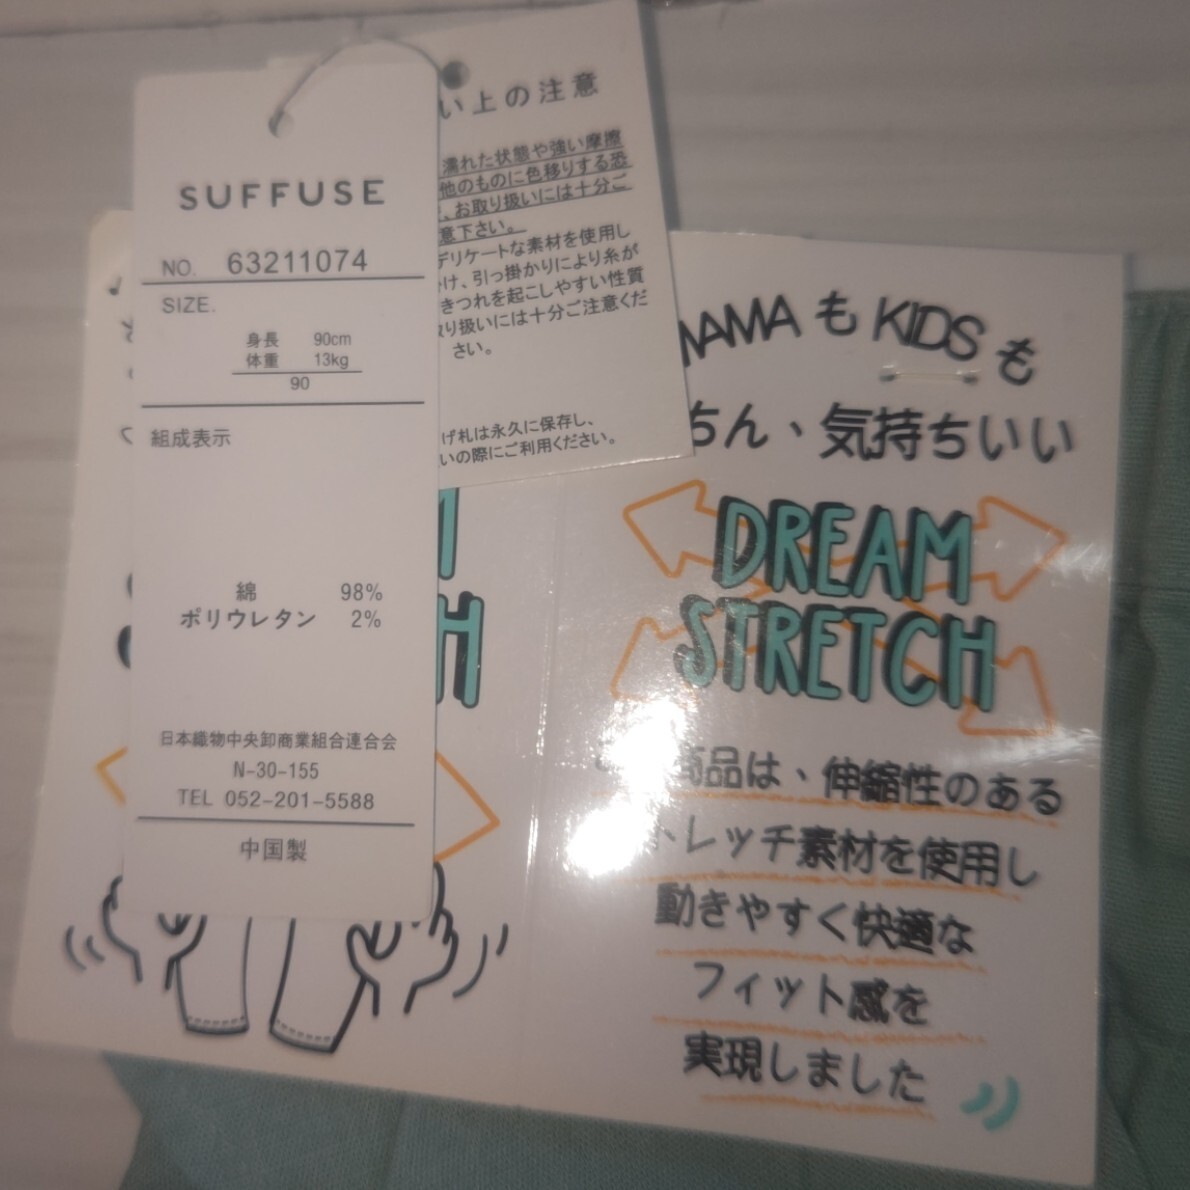 SUFFUSE
NO. 63211074
SIZE.
身長 90cm
体重 13kg
90
組成表示
綿 98%
ポリウレタン 2%
日本織物中央卸商業組合連合会
N-30-155
TEL 052-201-5588
中国製
い上の注意
濡れた状態や強い摩擦
他のものに色移りする恐
、お取り扱いには十分ご
意下さい。
デリケートな素材を使用し
け、引っ掛かりにより糸が
きつれを起こしやすい性質
取り扱いには十分ご注意くだ
さい。
げ札は永久に保存し、
いの際にご利用ください。
MAMAもKIDSも
ちん、気持ちいい
DREAM
STRETCH
商品は、伸縮性のある
トレッチ素材を使用し
動きやすく快適な
フィット感を
実現しました